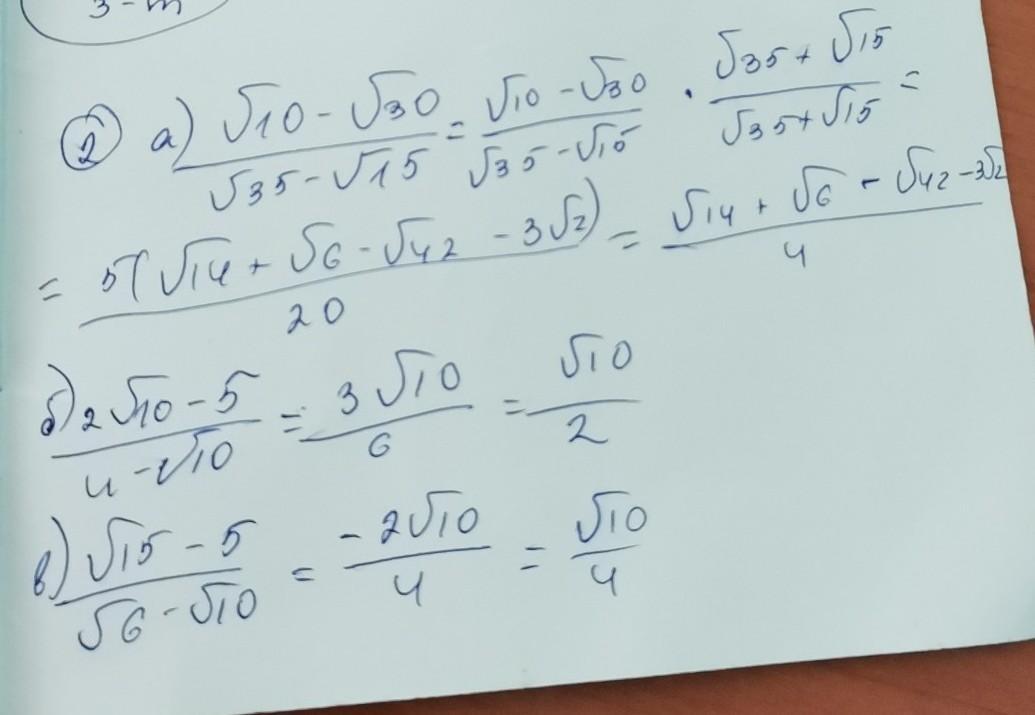 3-m
② а) (√10 - √30)/(√35 - √15) = (√10 - √30)/(√35 - √15) · (√35 + √15)/(√35 + √15) =
= 5(√14 + √6 - √42 - 3√2)/20 = (√14 + √6 - √42 - 3√2)/4
б) (2√10 - 5)/(4 - √10) = 3√10/6 = √10/2
в) (√15 - 5)/(√6 - √10) = -2√10/4 = √10/4